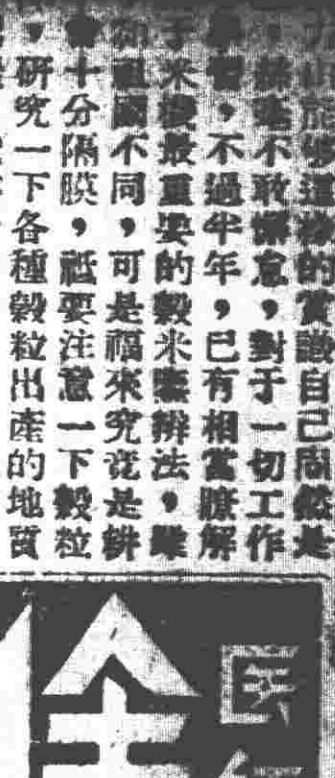 的常識自己固然是
，絲毫不敢懈怠，對于一切工作
學習，不過半年，已有相當瞭解
于米糧最重要的穀米鑒辨法，雖
祖國不同，可是福來究竟是耕
十分隔膜，祗要注意一下穀粒
，研究一下各種穀粒出產的地質
民
全